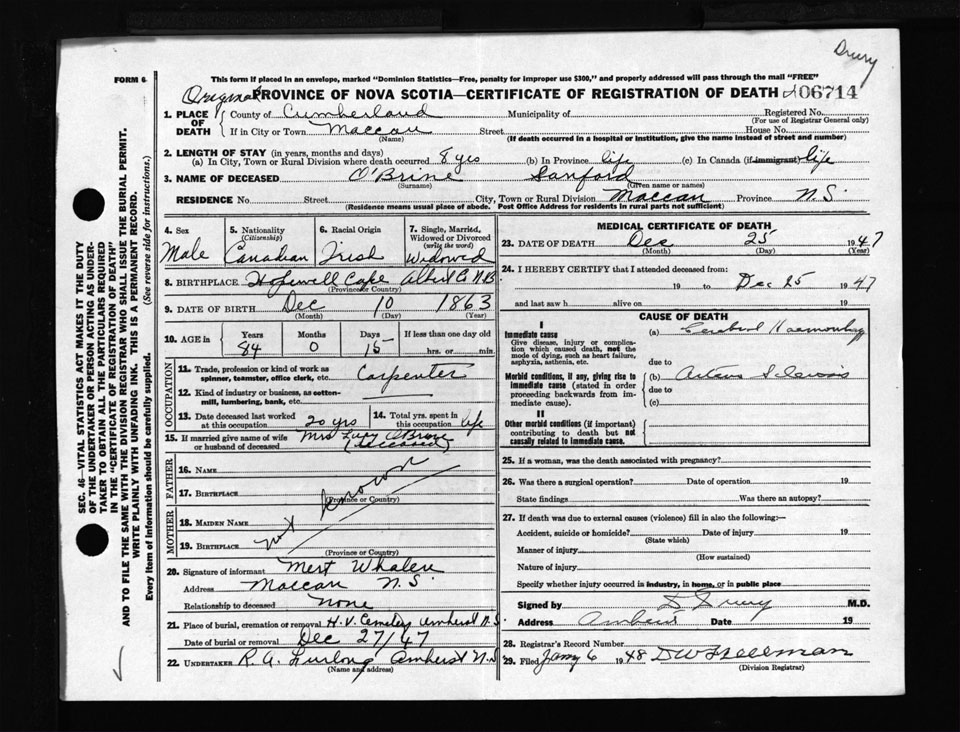 Drury
FORM 6
This form if placed in an envelope, marked "Dominion Statistics—Free, penalty for improper use $300," and properly addressed will pass through the mail "FREE"
Original PROVINCE OF NOVA SCOTIA—CERTIFICATE OF REGISTRATION OF DEATH 06714
1. PLACE OF DEATH County of Cumberland Municipality of Registered No.
(For use of Registrar General only)
If in City or Town Maccan Street House No.
(Name) (If death occurred in a hospital or institution, give the name instead of street and number)
2. LENGTH OF STAY (in years, months and days)
(a) In City, Town or Rural Division where death occurred 8 yrs (b) In Province life (c) In Canada (if immigrant) life
3. NAME OF DECEASED O'Brine Sanford
(Surname) (Given name or names)
RESIDENCE No. Street City, Town or Rural Division Maccan Province N.S.
(Residence means usual place of abode. Post Office Address for residents in rural parts not sufficient)
4. Sex Male
5. Nationality (Citizenship) Canadian
6. Racial Origin Irish
7. Single, Married, Widowed or Divorced (write the word) Widowed
8. BIRTHPLACE Hopewell Cape Albert Co N.B.
(Province or Country)
9. DATE OF BIRTH Dec 10 1863
(Month) (Day) (Year)
10. AGE in Years Months Days If less than one day old
84 0 15 hrs. or min.
OCCUPATION
11. Trade, profession or kind of work as spinner, teamster, office clerk, etc. Carpenter
12. Kind of industry or business, as cotton-mill, lumbering, bank, etc.
13. Date deceased last worked at this occupation 20 yrs
14. Total yrs. spent in this occupation life
15. If married give name of wife or husband of deceased Mrs Lucy O'Brine
(deceased)
FATHER
16. NAME
17. BIRTHPLACE
(Province or Country)
MOTHER
18. MAIDEN NAME
19. BIRTHPLACE
(Province or Country)
not known
20. Signature of informant Mert Whalen
Address Maccan N.S.
Relationship to deceased none
21. Place of burial, cremation or removal H.V. Cemetery Amherst N.S
Date of burial or removal Dec 27/47
22. UNDERTAKER R.A. Furlong Amherst N.S
(Name and address)
MEDICAL CERTIFICATE OF DEATH
23. DATE OF DEATH Dec 25 1947
(Month) (Day) (Year)
24. I HEREBY CERTIFY that I attended deceased from:
19 to Dec 25 1947
and last saw h alive on 19
CAUSE OF DEATH
I
Immediate cause (a) Cerebral Haemorrhage
Give disease, injury or complication which caused death, not the mode of dying, such as heart failure, asphyxia, asthenia, etc.
due to
Morbid conditions, if any, giving rise to immediate cause (stated in order proceeding backwards from immediate cause). (b)
due to
(c)
II
Other morbid conditions (if important) contributing to death but not causally related to immediate cause.
25. If a woman, was the death associated with pregnancy?
26. Was there a surgical operation? Date of operation 19
State findings Was there an autopsy?
27. If death was due to external causes (violence) fill in also the following:—
Accident, suicide or homicide? Date of injury 19
(State which)
Manner of injury
(How sustained)
Nature of injury
Specify whether injury occurred in industry, in home, or in public place
Signed by D Drury M.D.
Address Amherst Date 19
28. Registrar's Record Number
29. Filed Jany 6 1948
(Division Registrar)
SEC. 46—VITAL STATISTICS ACT MAKES IT THE DUTY
OF THE UNDERTAKER OR PERSON ACTING AS UNDER-
TAKER TO OBTAIN ALL THE PARTICULARS REQUIRED
IN THE "CERTIFICATE OF REGISTRATION OF DEATH"
AND TO FILE THE SAME WITH THE DIVISION REGISTRAR WHO SHALL ISSUE THE BURIAL PERMIT.
WRITE PLAINLY WITH UNFADING INK. THIS IS A PERMANENT RECORD.
Every item of information should be carefully supplied. (See reverse side for instructions.)